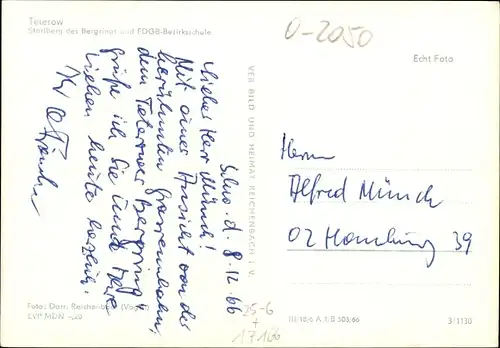 Teterow
Startberg des Bergrings und FDGB-Bezirksschule
0-2050
Echt Foto
8.12.66
Lieber Herr Münch!
Mit einer Ansicht von der
berühmten Grasrennbahn,
dem Teterower Bergring,
grüße ich Sie und Ihre
Lieben heute herzlich.
Ihr
Herrn
Alfred Münch
02 Hamburg 39
VEB BILD UND HEIMAT REICHENBACH I. V.
Foto: Darr, Reichenbach (Vogtl.)
EVP MDN -,20
25-6
+
17166
III/18/6 A 1/B 503/66
3/1130